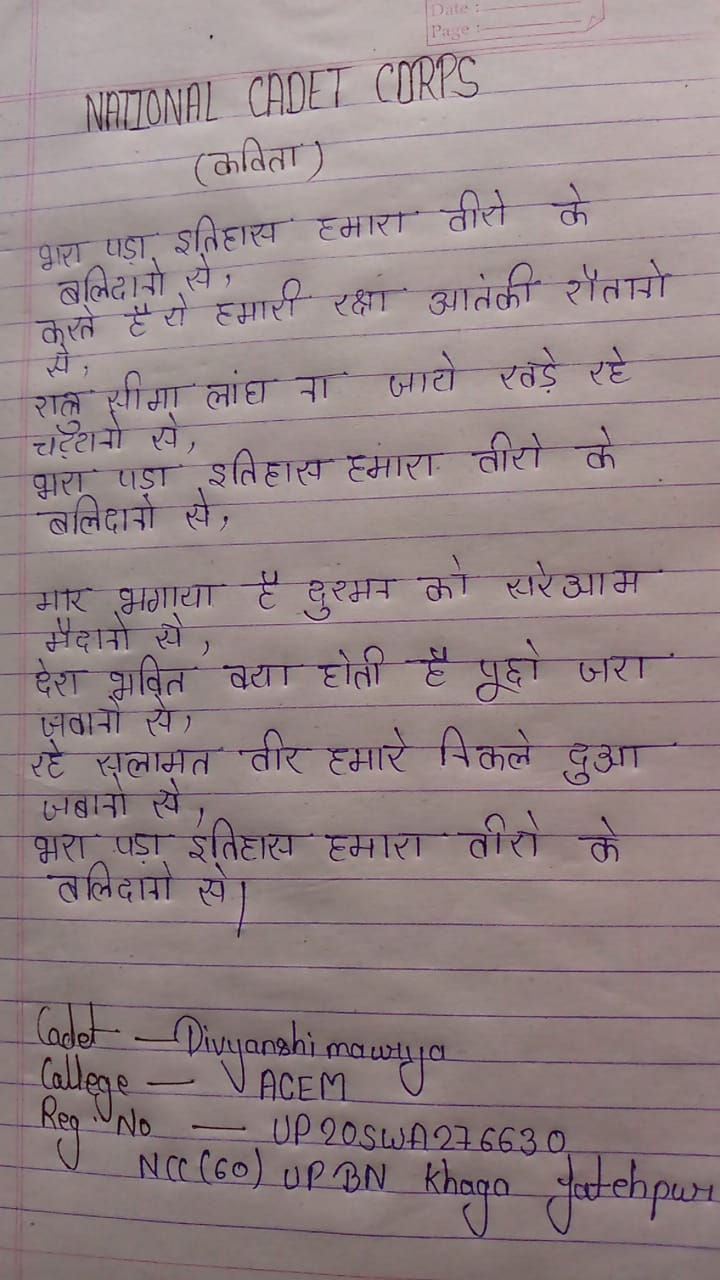 Date :
Page :
NATIONAL CADET CORPS
(कविता)
भरा पड़ा इतिहास हमारा वीरो के
बलिदानो से,
करते है ये हमारी रक्षा आतंकी शैतानो
से,
शत्रु सीमा लांघ ना जाये खड़े रहे
चट्टानो से,
भरा पड़ा इतिहास हमारा वीरो के
बलिदानो से,
मार भगाया है दुश्मन को सरेआम
मैदानो से,
देश भक्ति क्या होती है पूछो जरा
जवानो से,
रहे सलामत वीर हमारे निकले दुआ
जबानो से,
भरा पड़ा इतिहास हमारा वीरो के
बलिदानो से|
Cadet — Divyanshi mawrya
Callege — ACEM
Reg. No — UP20SWA276630
NCC (60) UP BN Khaga fatehpur